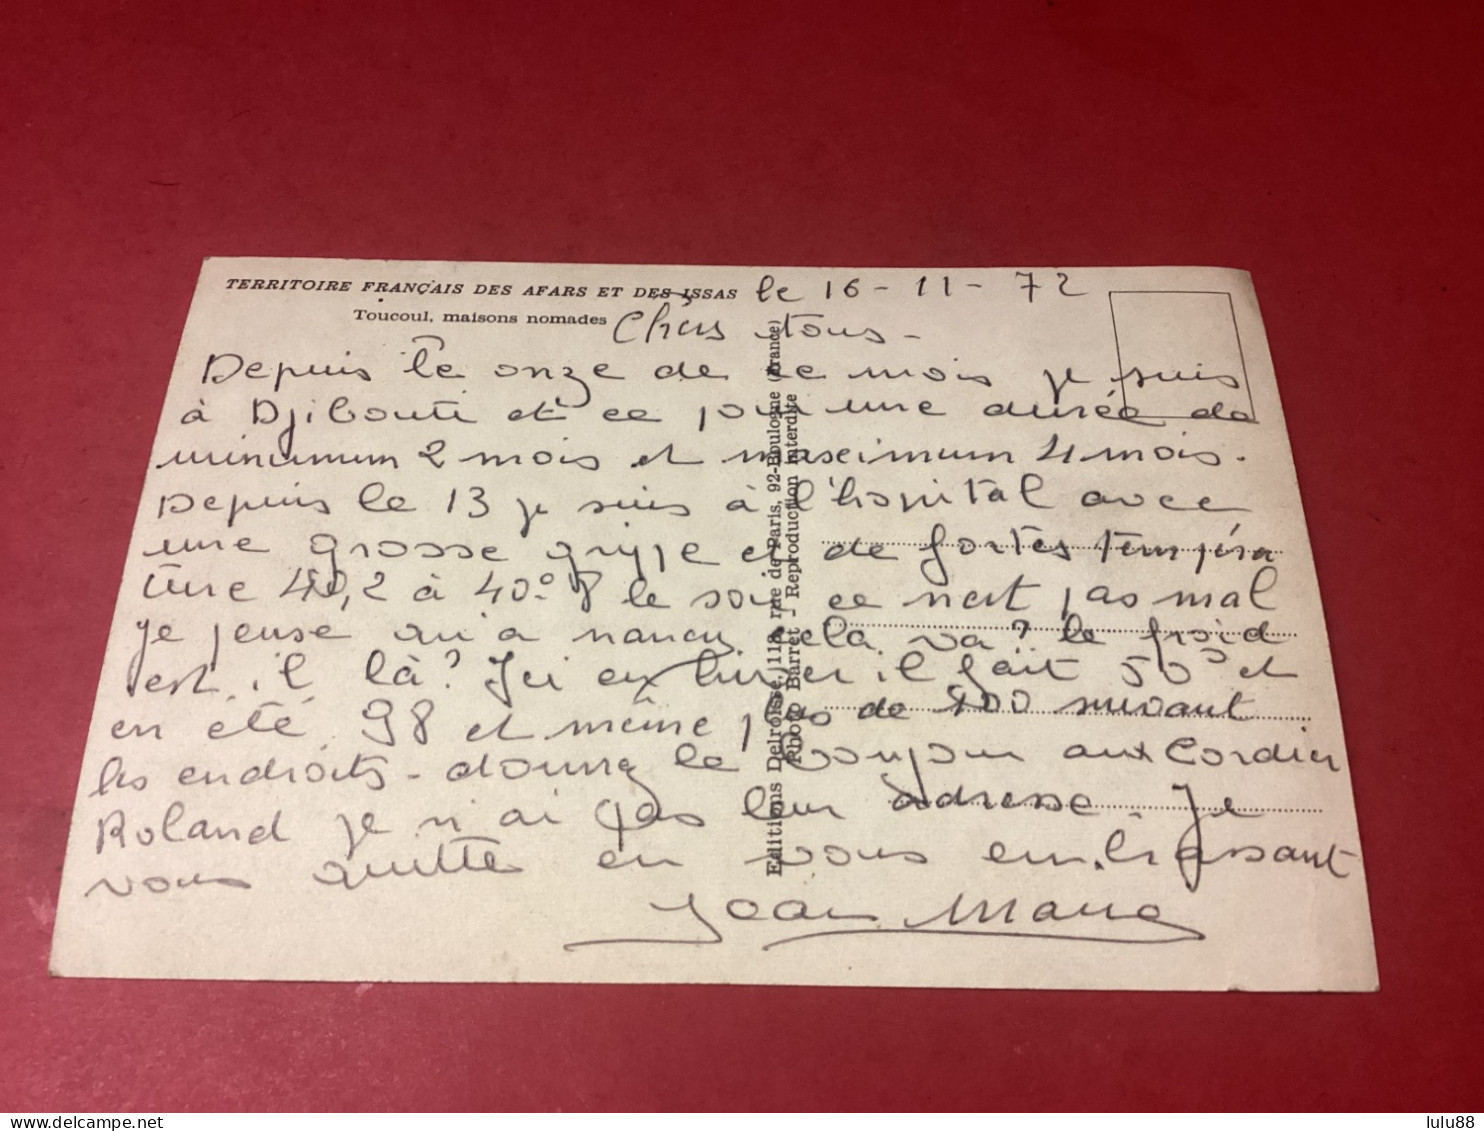 TERRITOIRE FRANÇAIS DES AFARS ET DES ISSAS
le 16-11-72
Toucoul, maisons nomades
Chers tous -
Depuis le onze de ce mois je suis
à Djibouti et ce pour une durée de
minimum 2 mois et maximum 4 mois.
Depuis le 13 je suis à l'hopital avec
une grosse grippe et de fortes tempéra
ture 40,2 à 40°8 le soir ce n'est pas mal
je pense qu'a nancy cela va? le froid
est il là? Ici en hiver il fait 50° et
en été 98 et même plus de 100 suivant
les endroits - donnez le bonjour aux Cordier
Roland je n'ai pas leur adresse. Je
vous quitte en vous embrassant
Jean Marie
Editions Delroisse, 113, rue de Paris, 92-Boulogne (France)
Photo Barret - Reproduction interdite
lulu88